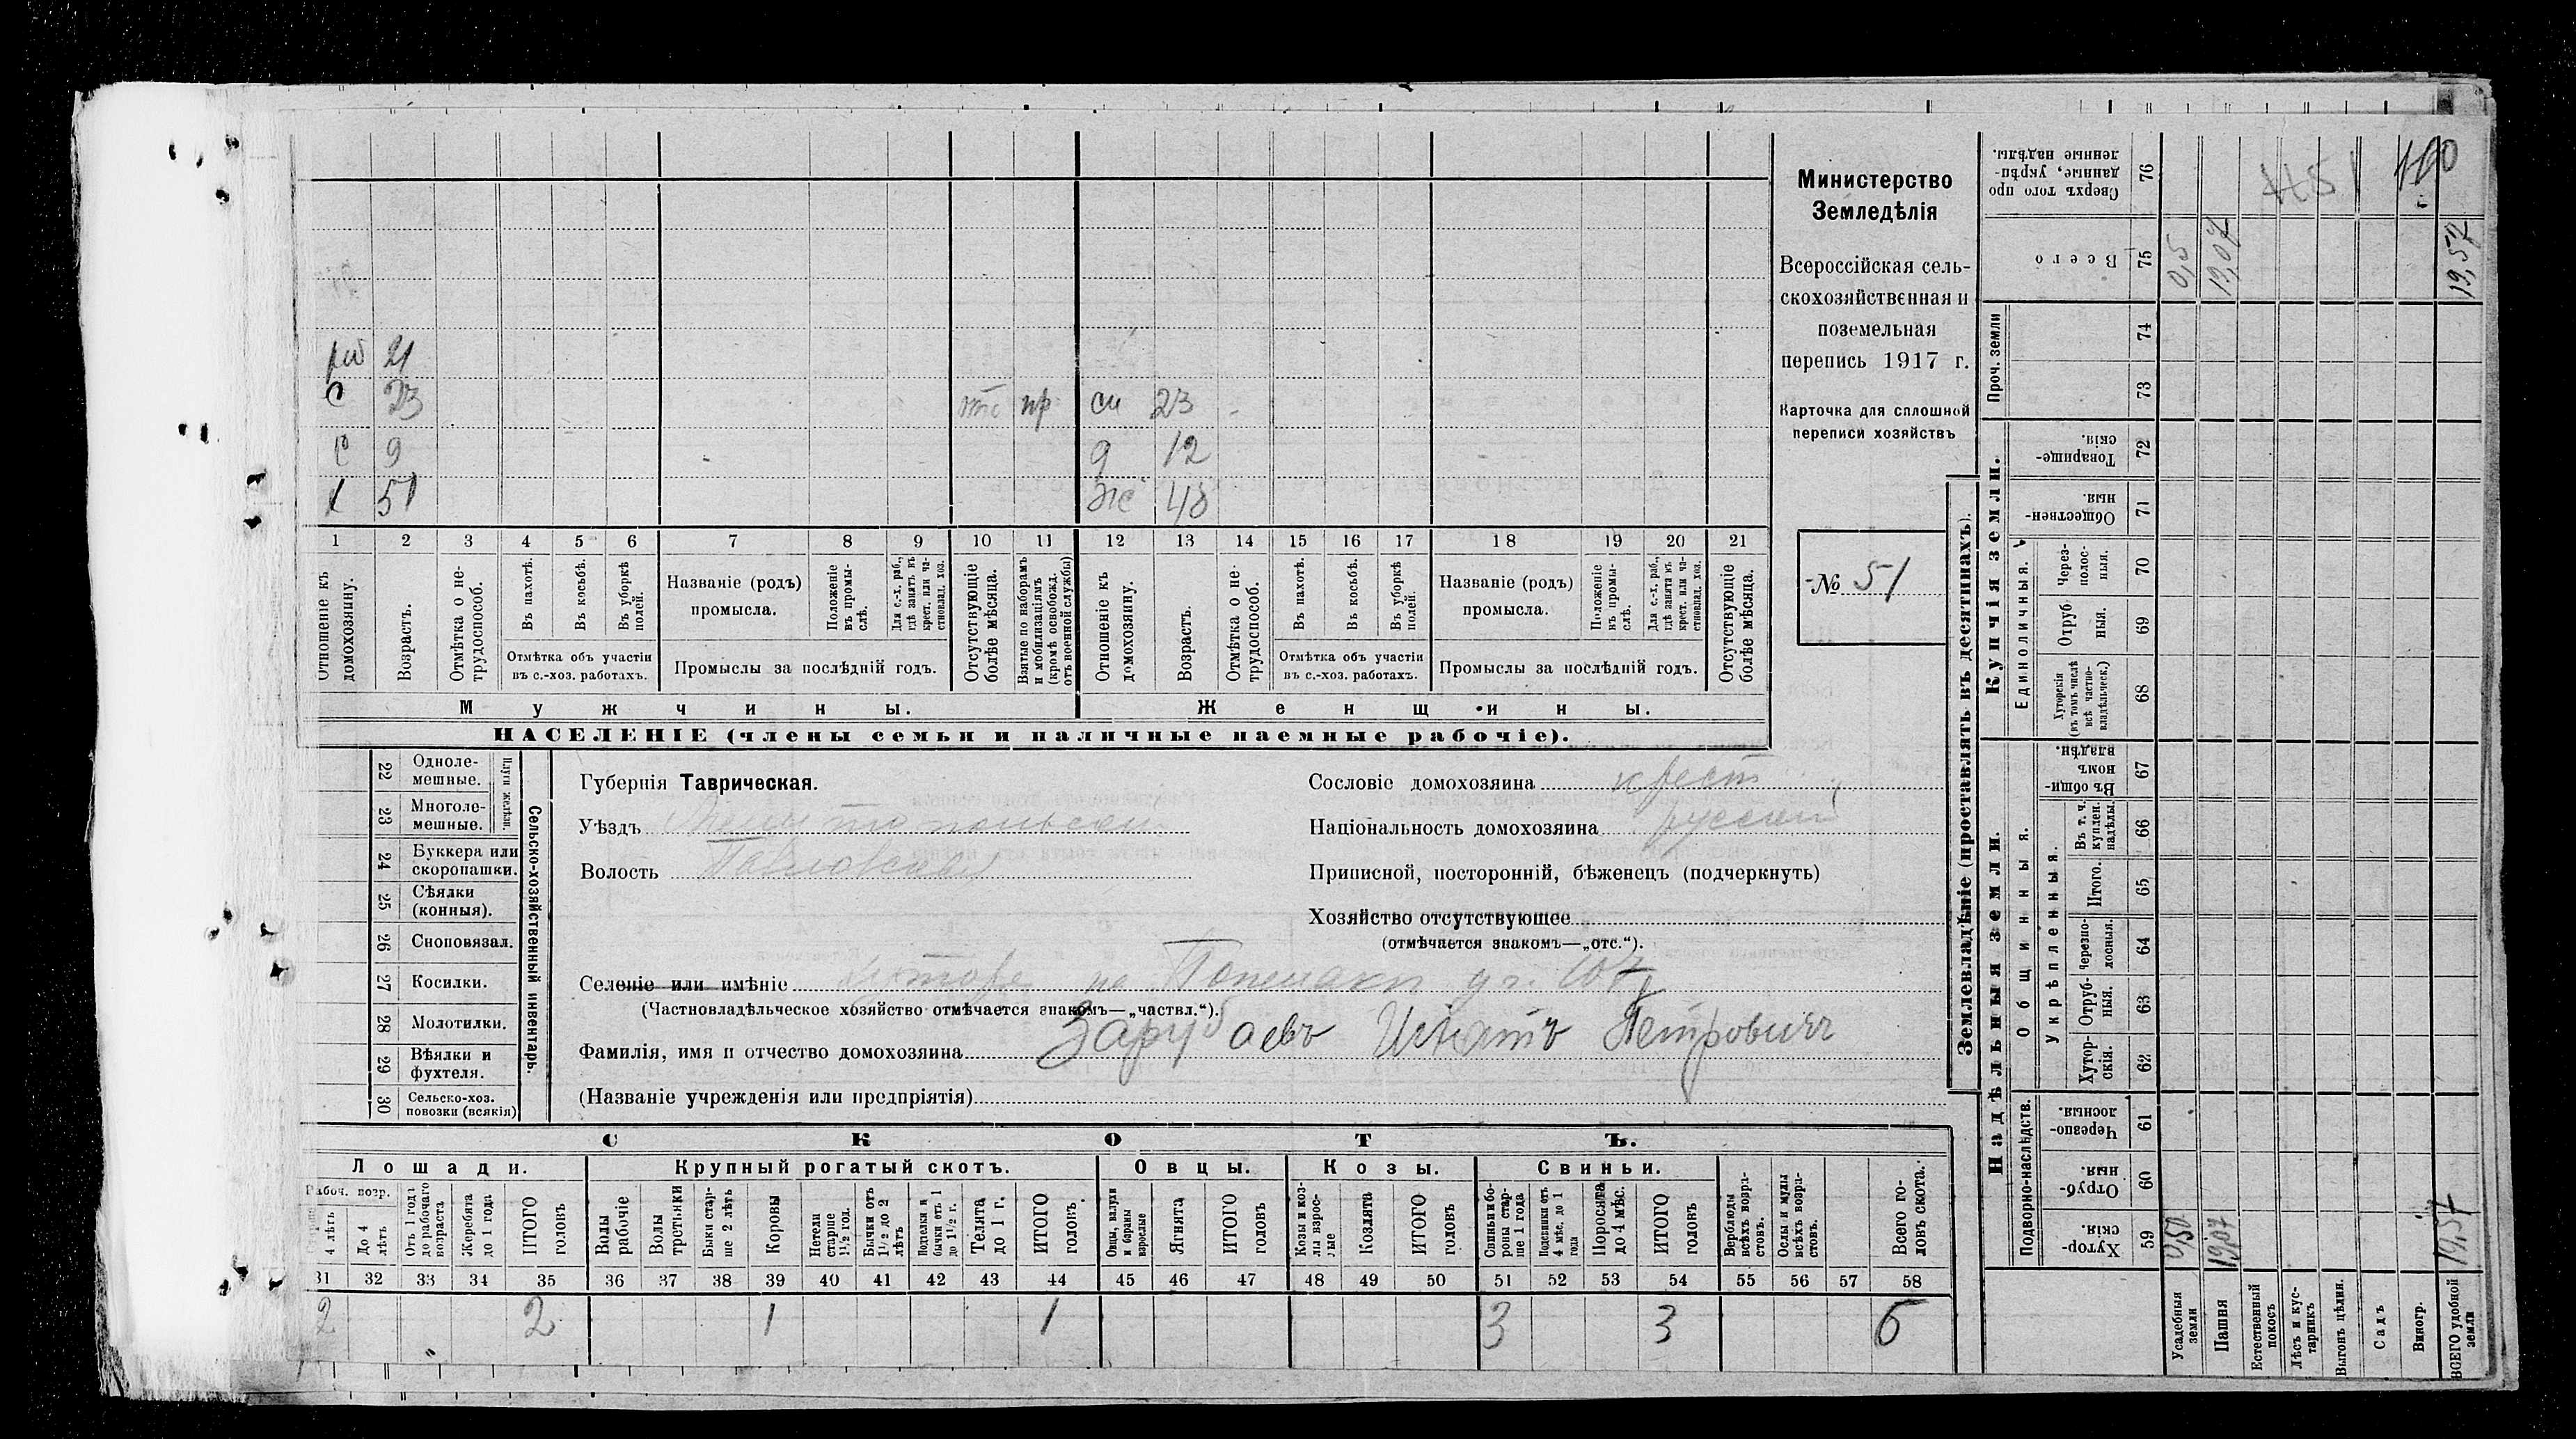 Министерство
Земледѣлія
Всероссійская сель-
скохозяйственная и
поземельная
перепись 1917 г.
Карточка для сплошной
переписи хозяйствъ
№ 51
21
С 23 пр сн 23
С 9 д 12
51 Же 48
1 2 3 4 5 6 7 8 9 10 11 12 13 14 15 16 17 18 19 20 21
Отношеніе къ домохозяину.
Возрастъ.
Отмѣтка о не-трудоспособ.
Въ пахотѣ.
Въ косьбѣ.
Въ уборкѣ полей.
Отмѣтка объ участіи
въ с.-хоз. работахъ.
Названіе (родъ)
промысла.
Положеніе въ промы-слѣ.
Для с.-х. раб., гдѣ занятъ въ крест. или ча-стновлад. хоз.
Промыслы за послѣдній годъ.
Отсутствующіе болѣе мѣсяца.
Взятые по наборамъ и мобилизаціямъ (кромѣ освобожд. отъ военной службы)
Отношеніе къ домохозяину.
Возрастъ.
Отмѣтка о не-трудоспособ.
Въ пахотѣ.
Въ косьбѣ.
Въ уборкѣ полей.
Отмѣтка объ участіи
въ с.-хоз. работахъ.
Названіе (родъ)
промысла.
Положеніе въ промы-слѣ.
Для с.-х. раб., гдѣ занята въ крест. или ча-стновлад. хоз.
Промыслы за послѣдній годъ.
Отсутствующіе болѣе мѣсяца.
Мужчины. Женщины.
НАСЕЛЕНІЕ (члены семьи и наличные наемные рабочіе).
22 Одноле-мешные.
23 Многоле-мешные.
Плуги желѣзн.
24 Буккера или скоропашки.
25 Сѣялки (конныя).
26 Сноповязал.
27 Косилки.
28 Молотилки.
29 Вѣялки и фухтеля.
30 Сельско-хоз. повозки (всякія)
Сельско-хозяйственный инвентарь.
Губернія Таврическая.
Уѣздъ
Волость Павловская
Сословіе домохозяина крест
Національность домохозяина русский
Приписной, посторонній, бѣженецъ (подчеркнуть)
Хозяйство отсутствующее
(отмѣчается знакомъ—„отс.“).
Селеніе или имѣніе
(Частновладѣльческое хозяйство отмѣчается знакомъ—„частвл.“).
Фамилія, имя и отчество домохозяина Зарубаевъ Игнатъ Петровичъ
(Названіе учрежденія или предпріятія)
СКОТЪ.
Лошади. Крупный рогатый скотъ. Овцы. Козы. Свиньи.
Рабоч. возр.
4 лѣтъ
До 4 лѣтъ
Отъ 1 года до рабочаго возраста
Жеребята до 1 года
ИТОГО головъ
Волы рабочіе
Волы третьяки
Быки стар-ше 2 лѣтъ
Коровы
Нетели старше 1½ год.
Бычки отъ 1½ до 2 лѣтъ
Нетелки и бычки отъ 1 до 1½ г.
Телята до 1 г.
ИТОГО головъ.
Овцы, валухи и бараны взрослые
Ягнята
ИТОГО головъ
Козы и коз-лы взрос-лые
Козлята
ИТОГО головъ
Свиньи и бо-ровы стар-ше 1 года
Подсвинки отъ 4 мѣс. до 1 года
Поросята до 4 мѣс.
ИТОГО головъ
Верблюды всѣхъ возра-стовъ.
Ослы и мулы всѣхъ возра-стовъ.
Всего го-ловъ скота.
31 32 33 34 35 36 37 38 39 40 41 42 43 44 45 46 47 48 49 50 51 52 53 54 55 56 57 58
2 2 1 1 3 3 6
Землевладѣніе (проставлять въ десятинахъ).
Сверхъ того про данные, укрѣп-ленные надѣлы. 76
Всего 75 0,5 19,07 19,57
Проч. земли 74 73
Купчія земли.
Товарище-скія. 72
Обществен-ныя. 71
Единоличныя.
Через-полос-ныя. 70
Отруб ныя. 69
Хуторскія (въ томъ числѣ всѣ частно-владѣльческ.) 68
Надѣльныя земли.
Общинныя.
Въ общи-номъ владѣн. 67
Укрѣпленныя.
Въ т. ч. куплен. надѣлы. 66
Итого. 65
Черезпо-лосныя. 64
Отруб-ныя. 63
Хутор-скія. 62
Подворно-наслѣдств.
Черезпо-лосныя. 61
Отруб-ныя. 60
Хутор-скія. 59 0,50 19,07 19,57
Усадебныя земли
Пашня
Естественный покосъ
Лѣсъ и кус-тарникъ
Выгонъ цѣлин.
Садъ
Виногр.
ВСЕГО удобной земли